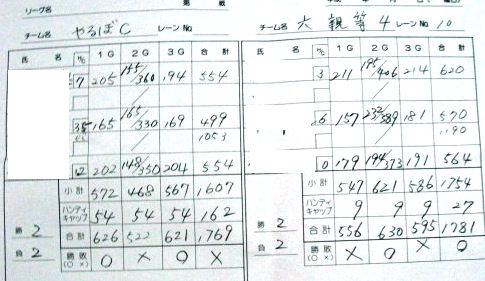 リーグ名 第 戦
チーム名 やるぼC レーンNo.
氏 名 H/C 1G 2G 3G 合計
7 205 155/360 194 554
35 165 165/330 169 499
1053
12 202 148/350 204 554
小計 572 468 567 1607
ハンディキャップ 54 54 54 162
勝 2 合計 626 522 621 1,769
負 2 勝敗(○×) ○ × ○ ×
チーム名 六親等4 レーンNo. 10
氏 名 H/C 1G 2G 3G 合計
3 211 195/406 214 620
6 157 232/389 181 570
1190
0 179 194/373 191 564
小計 547 621 586 1754
ハンディキャップ 9 9 9 27
勝 2 合計 556 630 595 1781
負 2 勝敗(○×) × ○ × ○